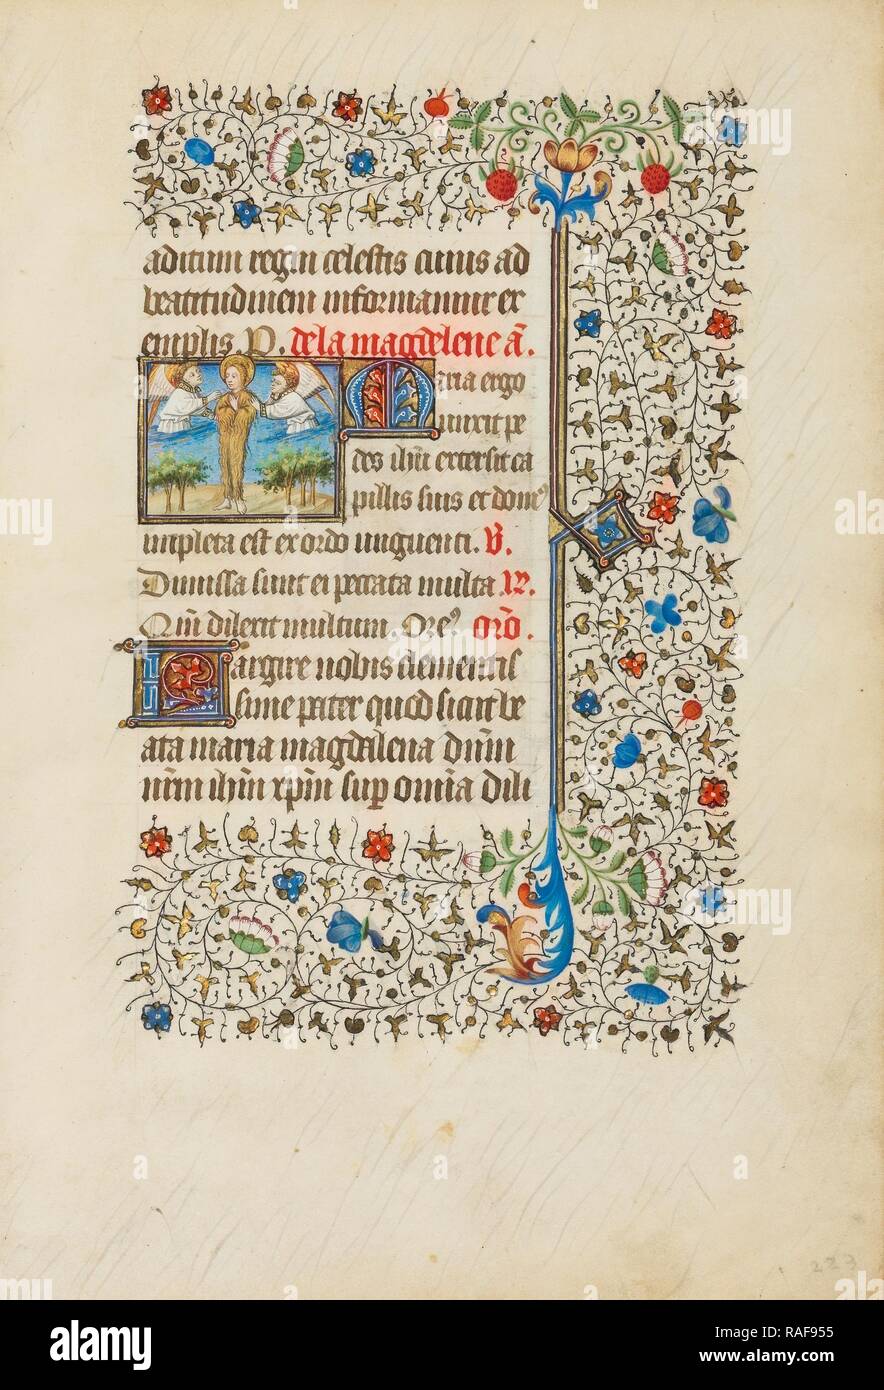 aditum regni celestis cuius ad
beatitudinem informamur ex
emplis. P. de la magdelene ā.
Maria ergo
unxit pe
des ihū extersit ca
pillis suis et domꝰ
impleta est ex odo unguenti. V.
Dimissa sunt ei peccata multa R.
Qm̄ dilexit multum. Oreꝰ. orō.
Largire nobis clementis
sime pater quod sicut be
ata maria magdalena dn̄m
nr̄m ihm̄ xpm̄ sup omīa dili
223
alamy
Image ID: RAF955
www.alamy.com